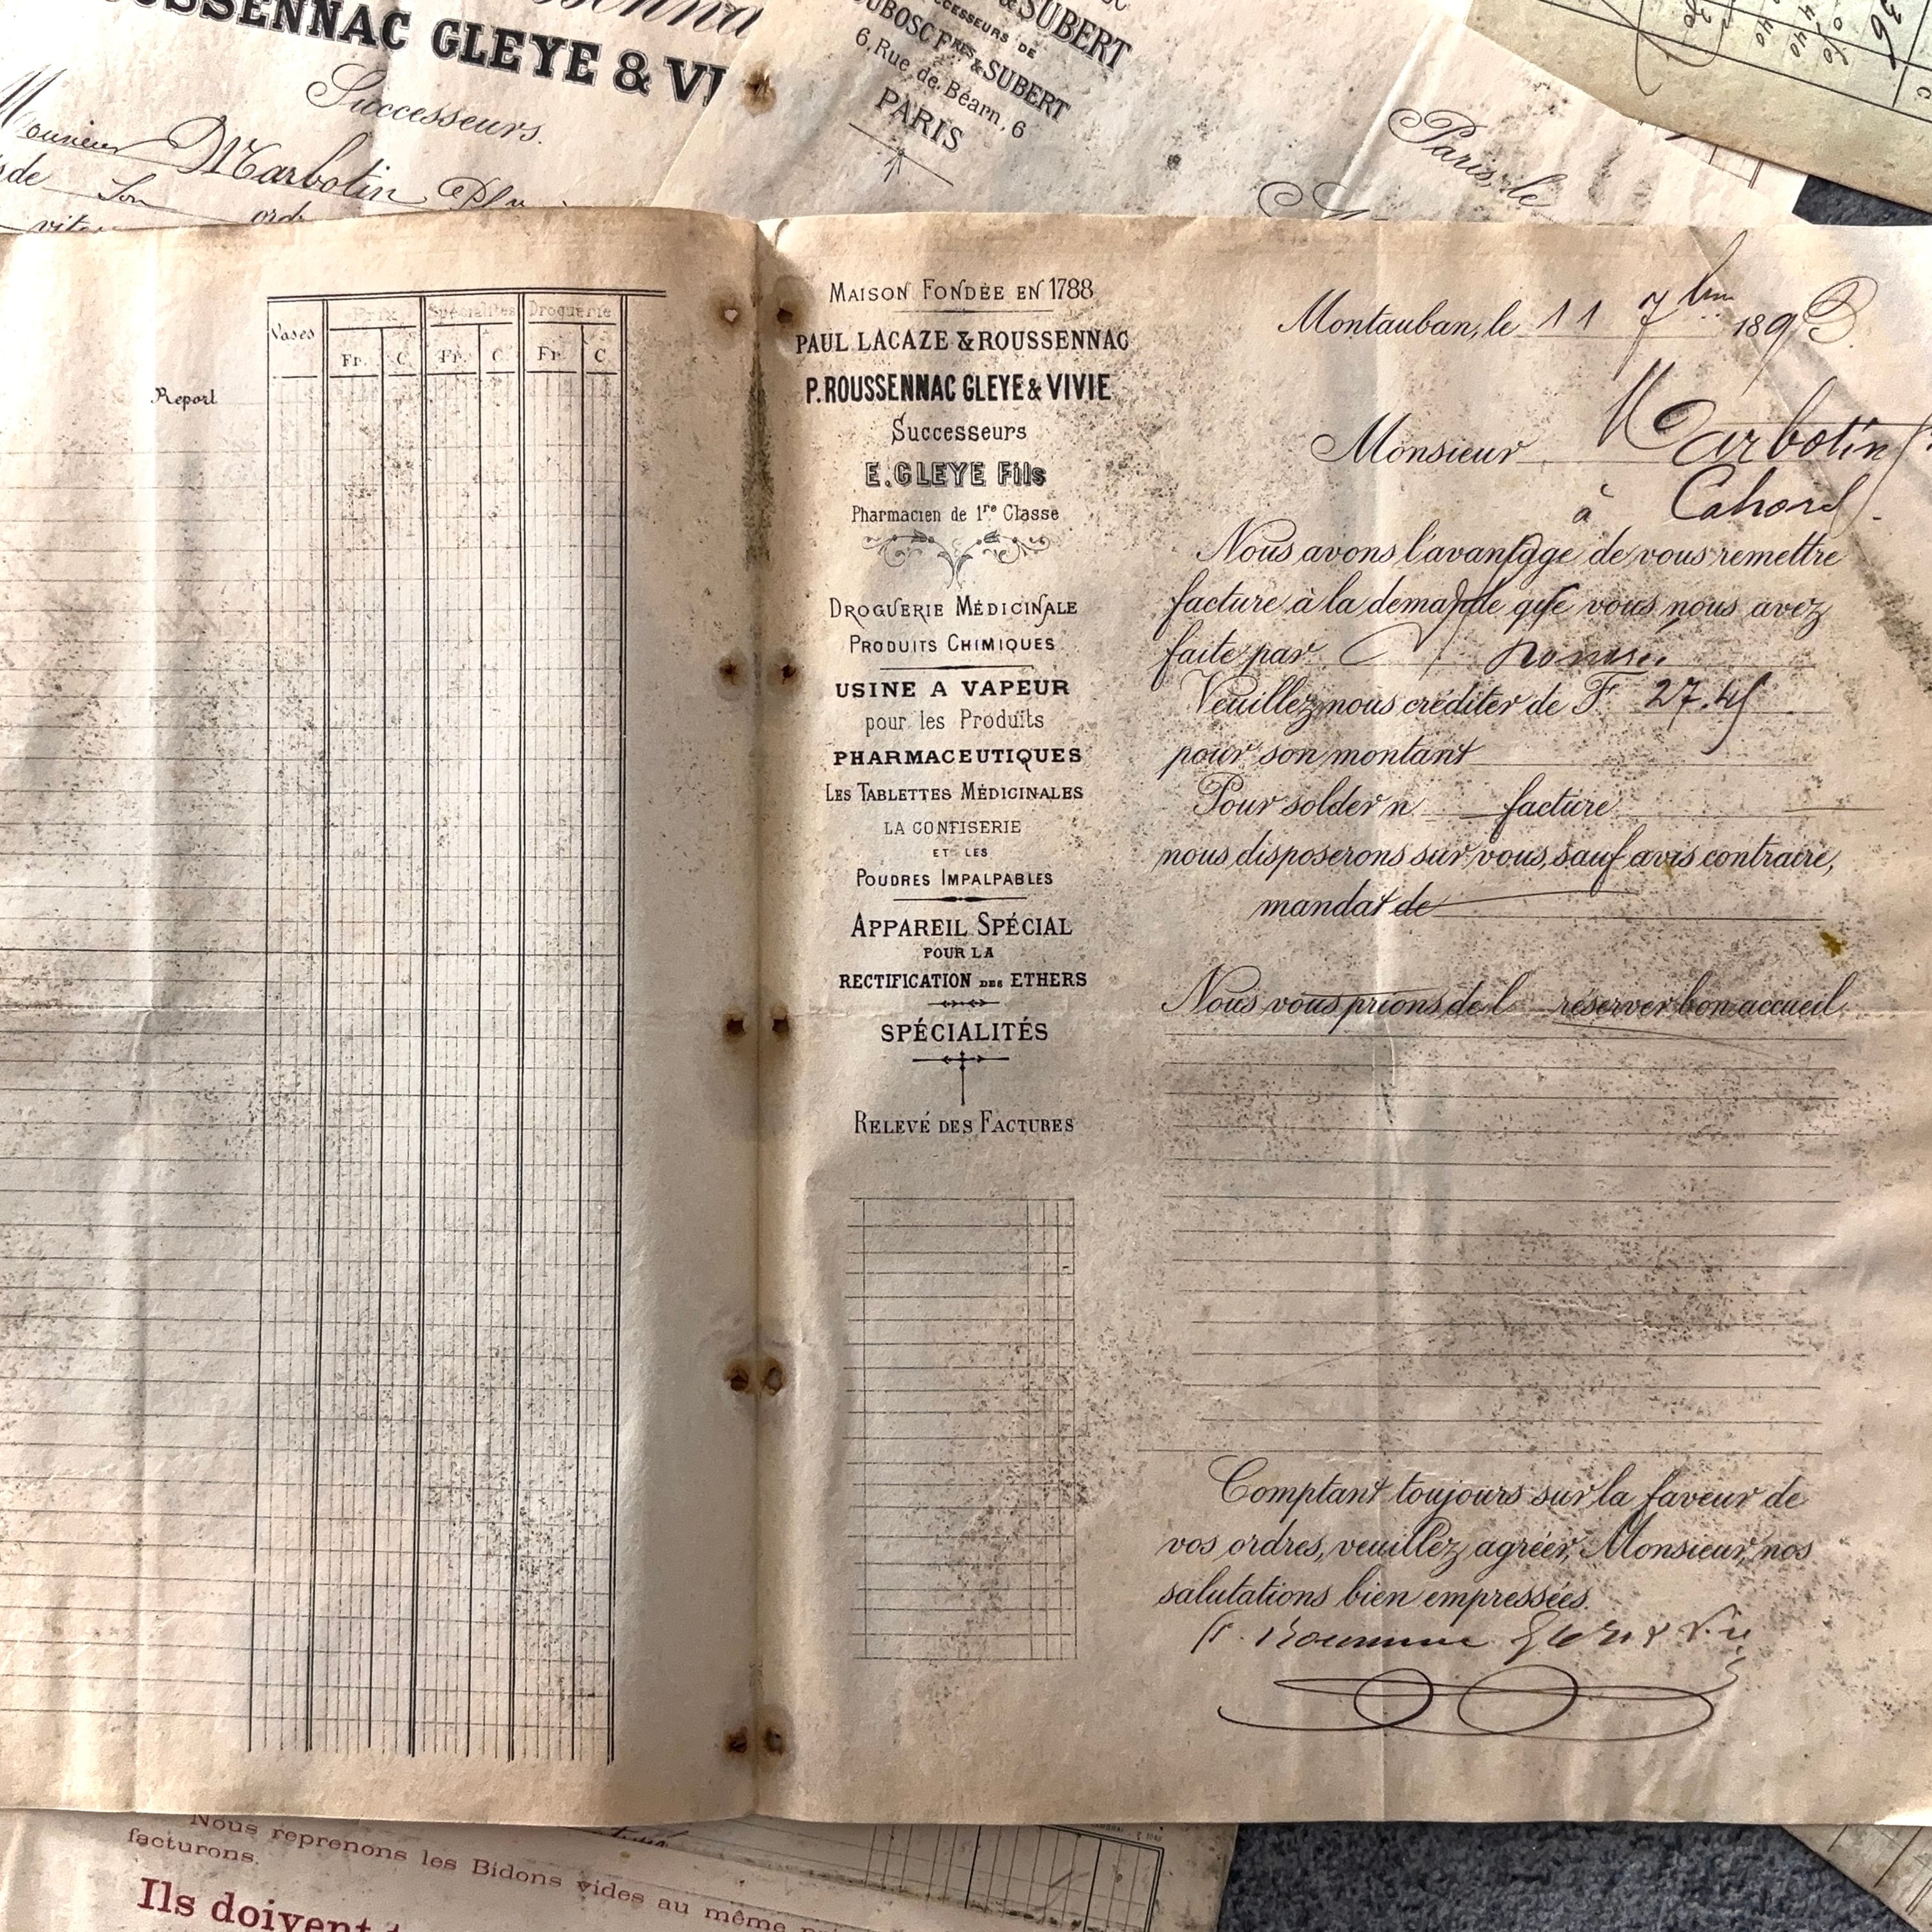 ROUSSENNAC GLEYE & VI
Successeurs.
Monsieur Marbotin
de Son ord
& SUBERT
CESSEURS DE
DUBOSC Fres & SUBERT
6, Rue de Béarn, 6
PARIS
Paris, le
36
Vases Prix Spécialités Droguerie
Fr. C. Fr. C Fr. C
Report
MAISON FONDÉE EN 1788
PAUL LACAZE & ROUSSENNAC
P. ROUSSENNAC GLEYE & VIVIE
Successeurs
E. GLEYE Fils
Pharmacien de 1re Classe
DROGUERIE MÉDICINALE
PRODUITS CHIMIQUES
USINE A VAPEUR
pour les Produits
PHARMACEUTIQUES
LES TABLETTES MÉDICINALES
LA CONFISERIE
ET LES
POUDRES IMPALPABLES
APPAREIL SPÉCIAL
POUR LA
RECTIFICATION DES ETHERS
SPÉCIALITÉS
RELEVÉ DES FACTURES
Montauban, le 11 7bre 189
Monsieur Marbotin
à Cahors.
Nous avons l'avantage de vous remettre
facture à la demande que vous nous avez
faite par
Veuillez nous créditer de F. 27.45
pour son montant
Pour solder n facture
nous disposerons sur vous, sauf avis contraire,
mandat de
Nous vous prions de l réserver bon accueil.
Comptant toujours sur la faveur de
vos ordres, veuillez agréer, Monsieur, nos
salutations bien empressées.
Nous reprenons les Bidons vides au même
facturons.
Ils doivent